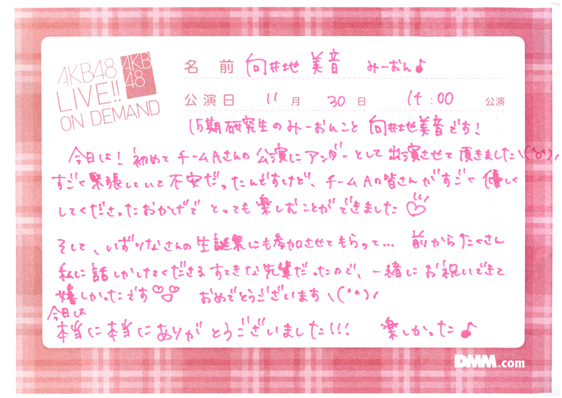 AKB48
LIVE!!
ON DEMAND
AKB
48
名 前 向井地 美音 みーおん♪
公演日 11 月 30 日 14:00 公演
15期研究生のみーおんこと 向井地美音です!
今日は!初めて チームAさんの 公演にアンダーとして 出演させて 頂きました\(^o^)/
すごく緊張していて 不安だったんですけど、チームAの皆さんがすごく 優しく
してくださったおかげで とっても楽しむことができました♡
そして、いずりなさんの 生誕祭にも参加させてもらって... 前からたくさん
私に話しかけてくださる すてきな先輩だったので、一緒に お祝いできて
嬉しかったです♡♡ おめでとうございます\(^^)/
今日は
本当に本当にありがとうございました!!! 楽しかった♪
DMM.com